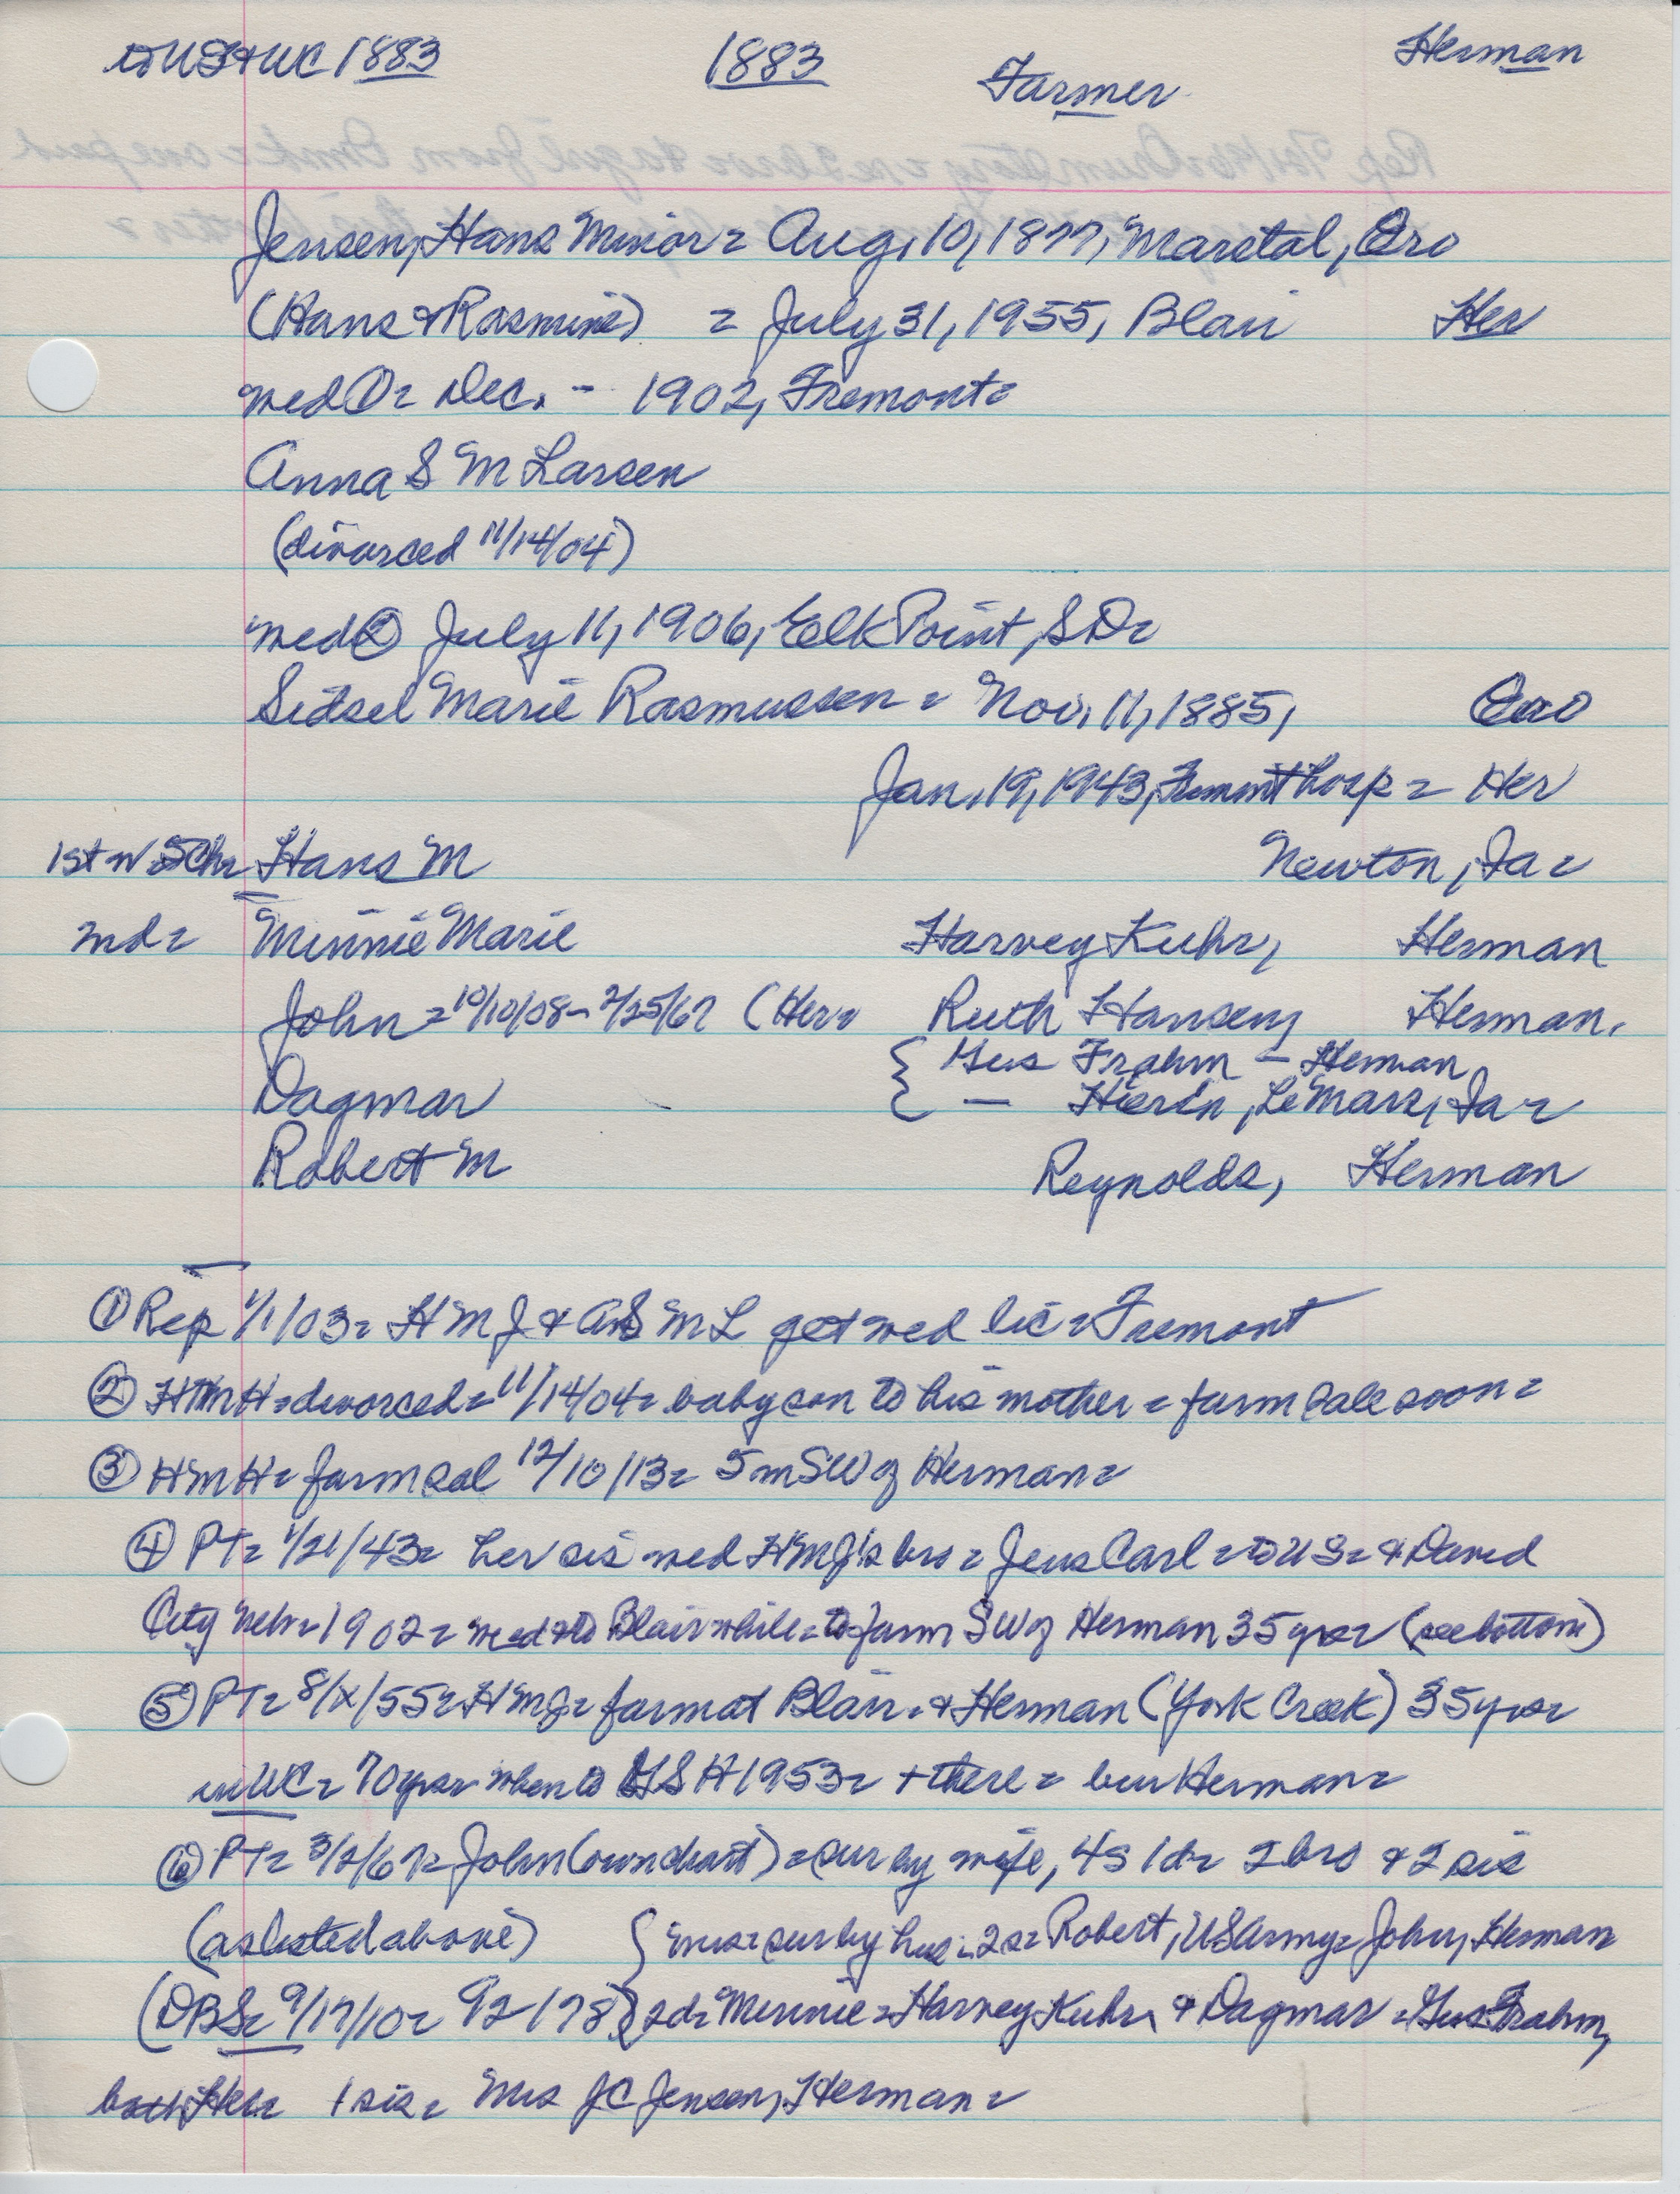 to US & WC 1883 1883 Farmer Herman
Jensen, Hans Minor = Aug, 10, 1877, Marstal, Æro
(Hans & Rasmine) = July 31, 1955, Blair Her
wed ① = Dec. - 1902, Fremont =
Anna S M Larsen
(divorced 11/14/04)
wed ② July 11, 1906, Elk Point, SD =
Sidsel Marie Rasmussen = Nov, 11, 1885, Æro
Jan, 19, 1943, Fremont hosp = Her
1st w = Hans M Newton, Ia =
2nd = Minnie Marie Harvey Kuhr, Herman
John = 10/10/08 - 2/25/67 (Her = Ruth Hansen, Herman,
{ Gus Frahm - Herman
Dagmar { — LeMars, Ia =
Robert M Reynolds, Herman
① Rep 1/1/03 = H M J & A S M L get wed lic = Fremont
② H M H = divorced = 11/14/04 = baby son to his mother = farm sale soon =
③ H M H = farm sal 12/10/13 = 5 m SW of Herman =
④ PT = 1/21/43 = her sis wed HMJ's bro = Jens Carl = to US = & David
City Neb = 1902 = wed & to Blair while = to farm SW of Herman 35 yrs = (see bottom)
⑤ PT = 8/X/55 = HMJ = farm at Blair = & Herman (York Creek) 35 yrs =
in WC = 70 yrs = when to 1953 = + there = bur Herman =
⑥ PT = 3/2/67 = John (own chart) = sur by wife, 4 s 1 d = 2 bro & 2 sis
(as listed above) { sur by hus = 2 s = Robert, US Army = John, Herman
(DBS = 9/17/10 = 92-178) { 2 d = Minnie = Harvey Kuhr, & Dagmar = Gus Frahm,
both Her = 1 sis = Mrs J C Jensen, Herman =